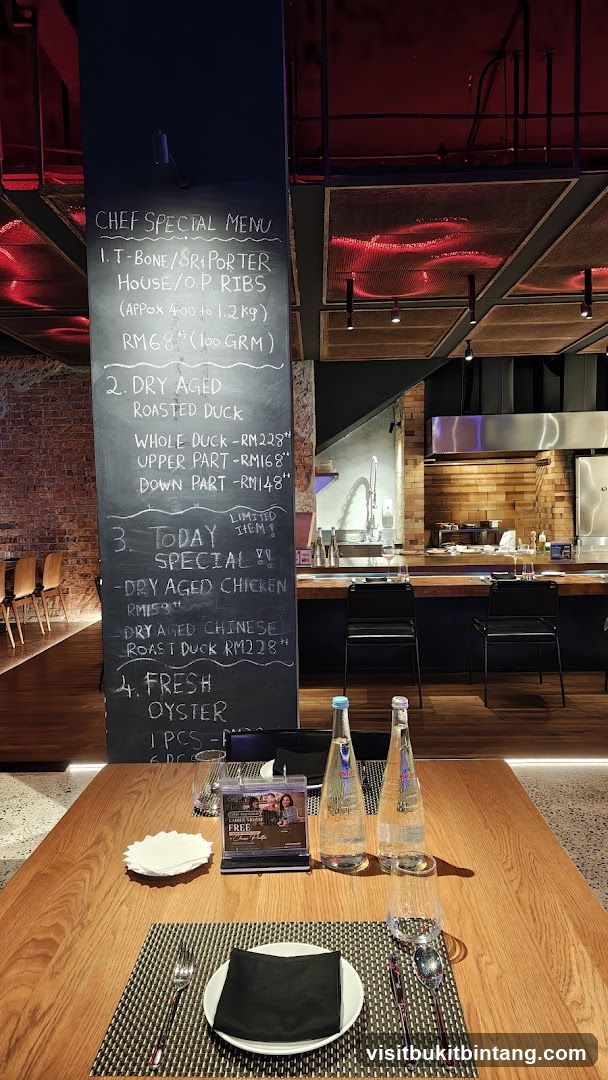 CHEF SPECIAL MENU
1. T-BONE/
PORTER
HOUSE/O.P. RIBS
(APPOX 400 to 1.2kg)
RM68++ (100 GRM)
2. DRY AGED
ROASTED DUCK
WHOLE DUCK - RM228++
UPPER PART - RM168++
DOWN PART - RM148++
LIMITED
ITEM!
3. TODAY
SPECIAL!!
- DRY AGED CHICKEN
RM158++
DRY AGED CHINESE
ROAST DUCK RM228++
4. FRESH
OYSTER
1 PCS -
6 PCS
LADIES
FREE
visitbukitbintang.com